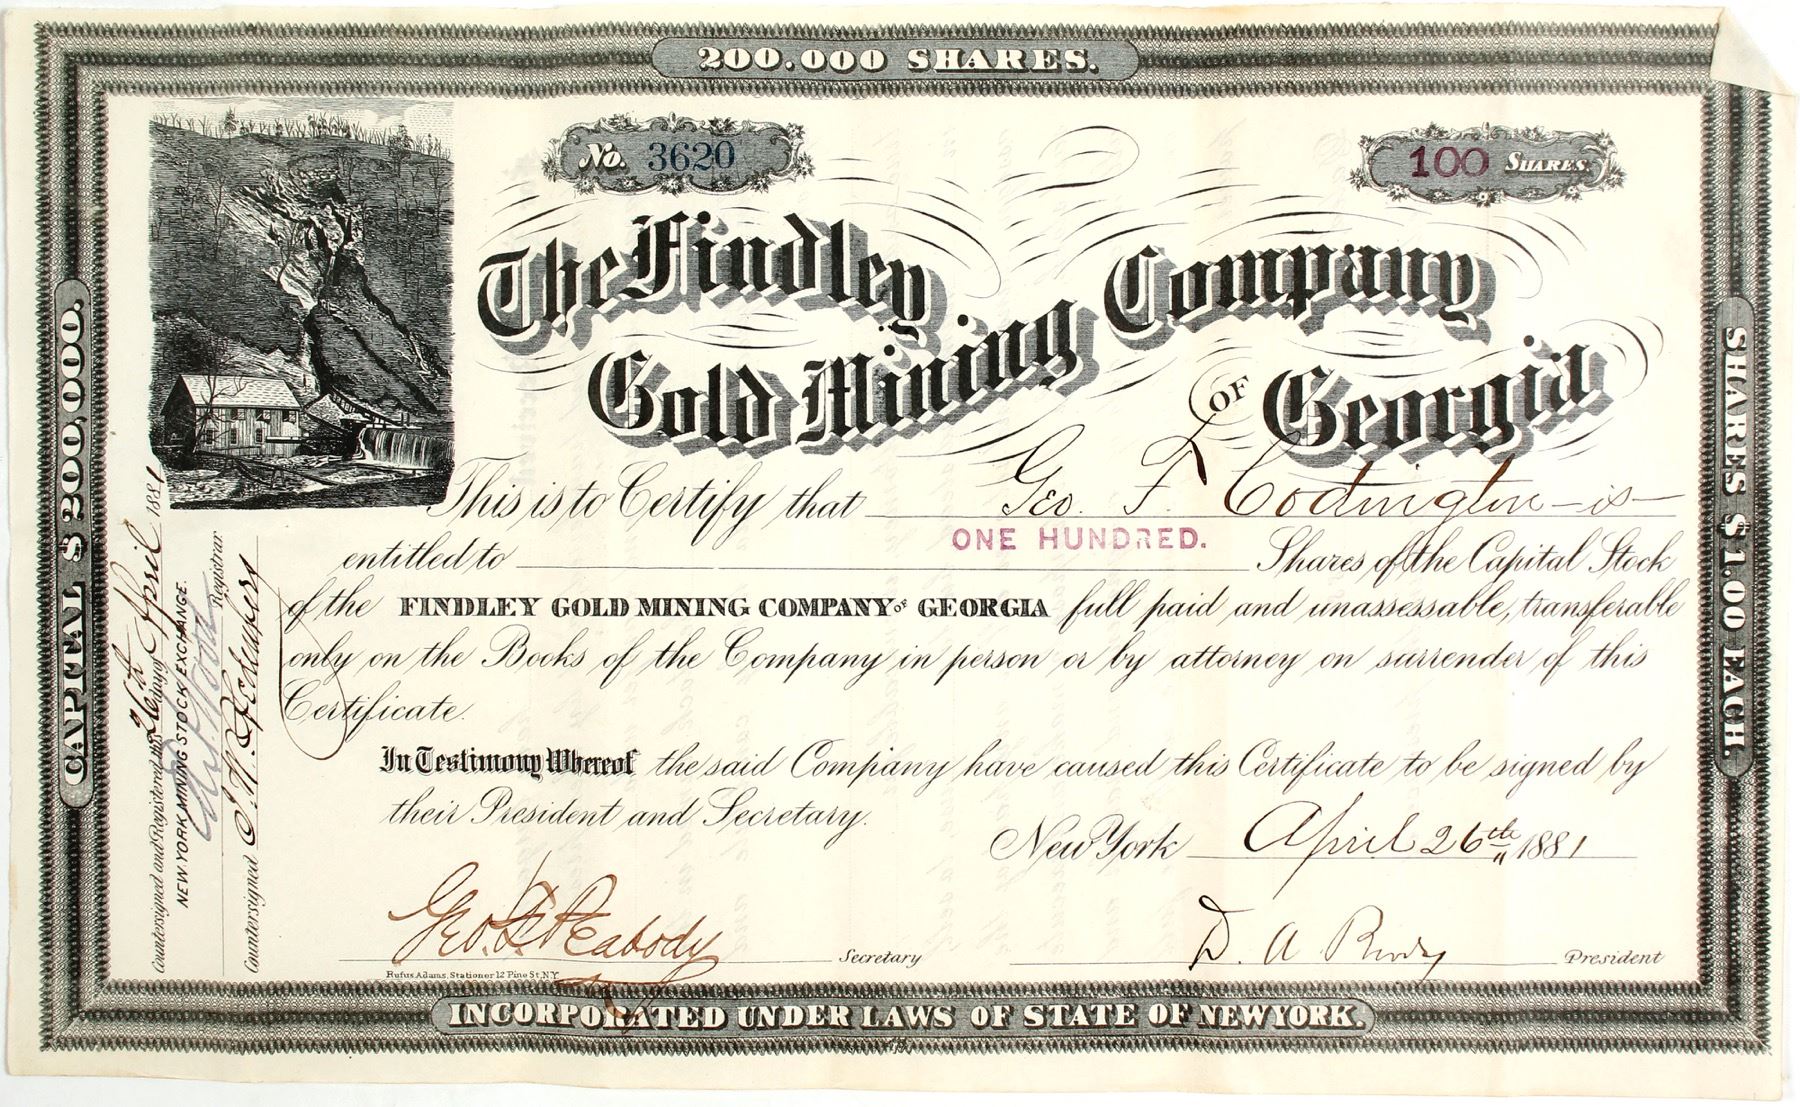 200.000 SHARES.
No. 3620
100 SHARES.
The Findley
Gold Mining
Company
OF Georgia
This is to Certify that Geo. F. Codington is
entitled to ONE HUNDRED. Shares of the Capital Stock
of the FINDLEY GOLD MINING COMPANY OF GEORGIA full paid and unassessable, transferable
only on the Books of the Company in person or by attorney on surrender of this
Certificate.
In Testimony Whereof the said Company have caused this Certificate to be signed by
their President and Secretary.
New York April 26th 1881
Geo. Peabody Secretary
D. A President
Rufus Adams, Stationer 12 Pine St. N.Y.
INCORPORATED UNDER LAWS OF STATE OF NEW YORK.
CAPITAL $200,000.
SHARES $1.00 EACH.
Countersigned and Registered this 26th day of April 1881
NEW YORK MINING STOCK EXCHANGE.
Registrar
Countersigned